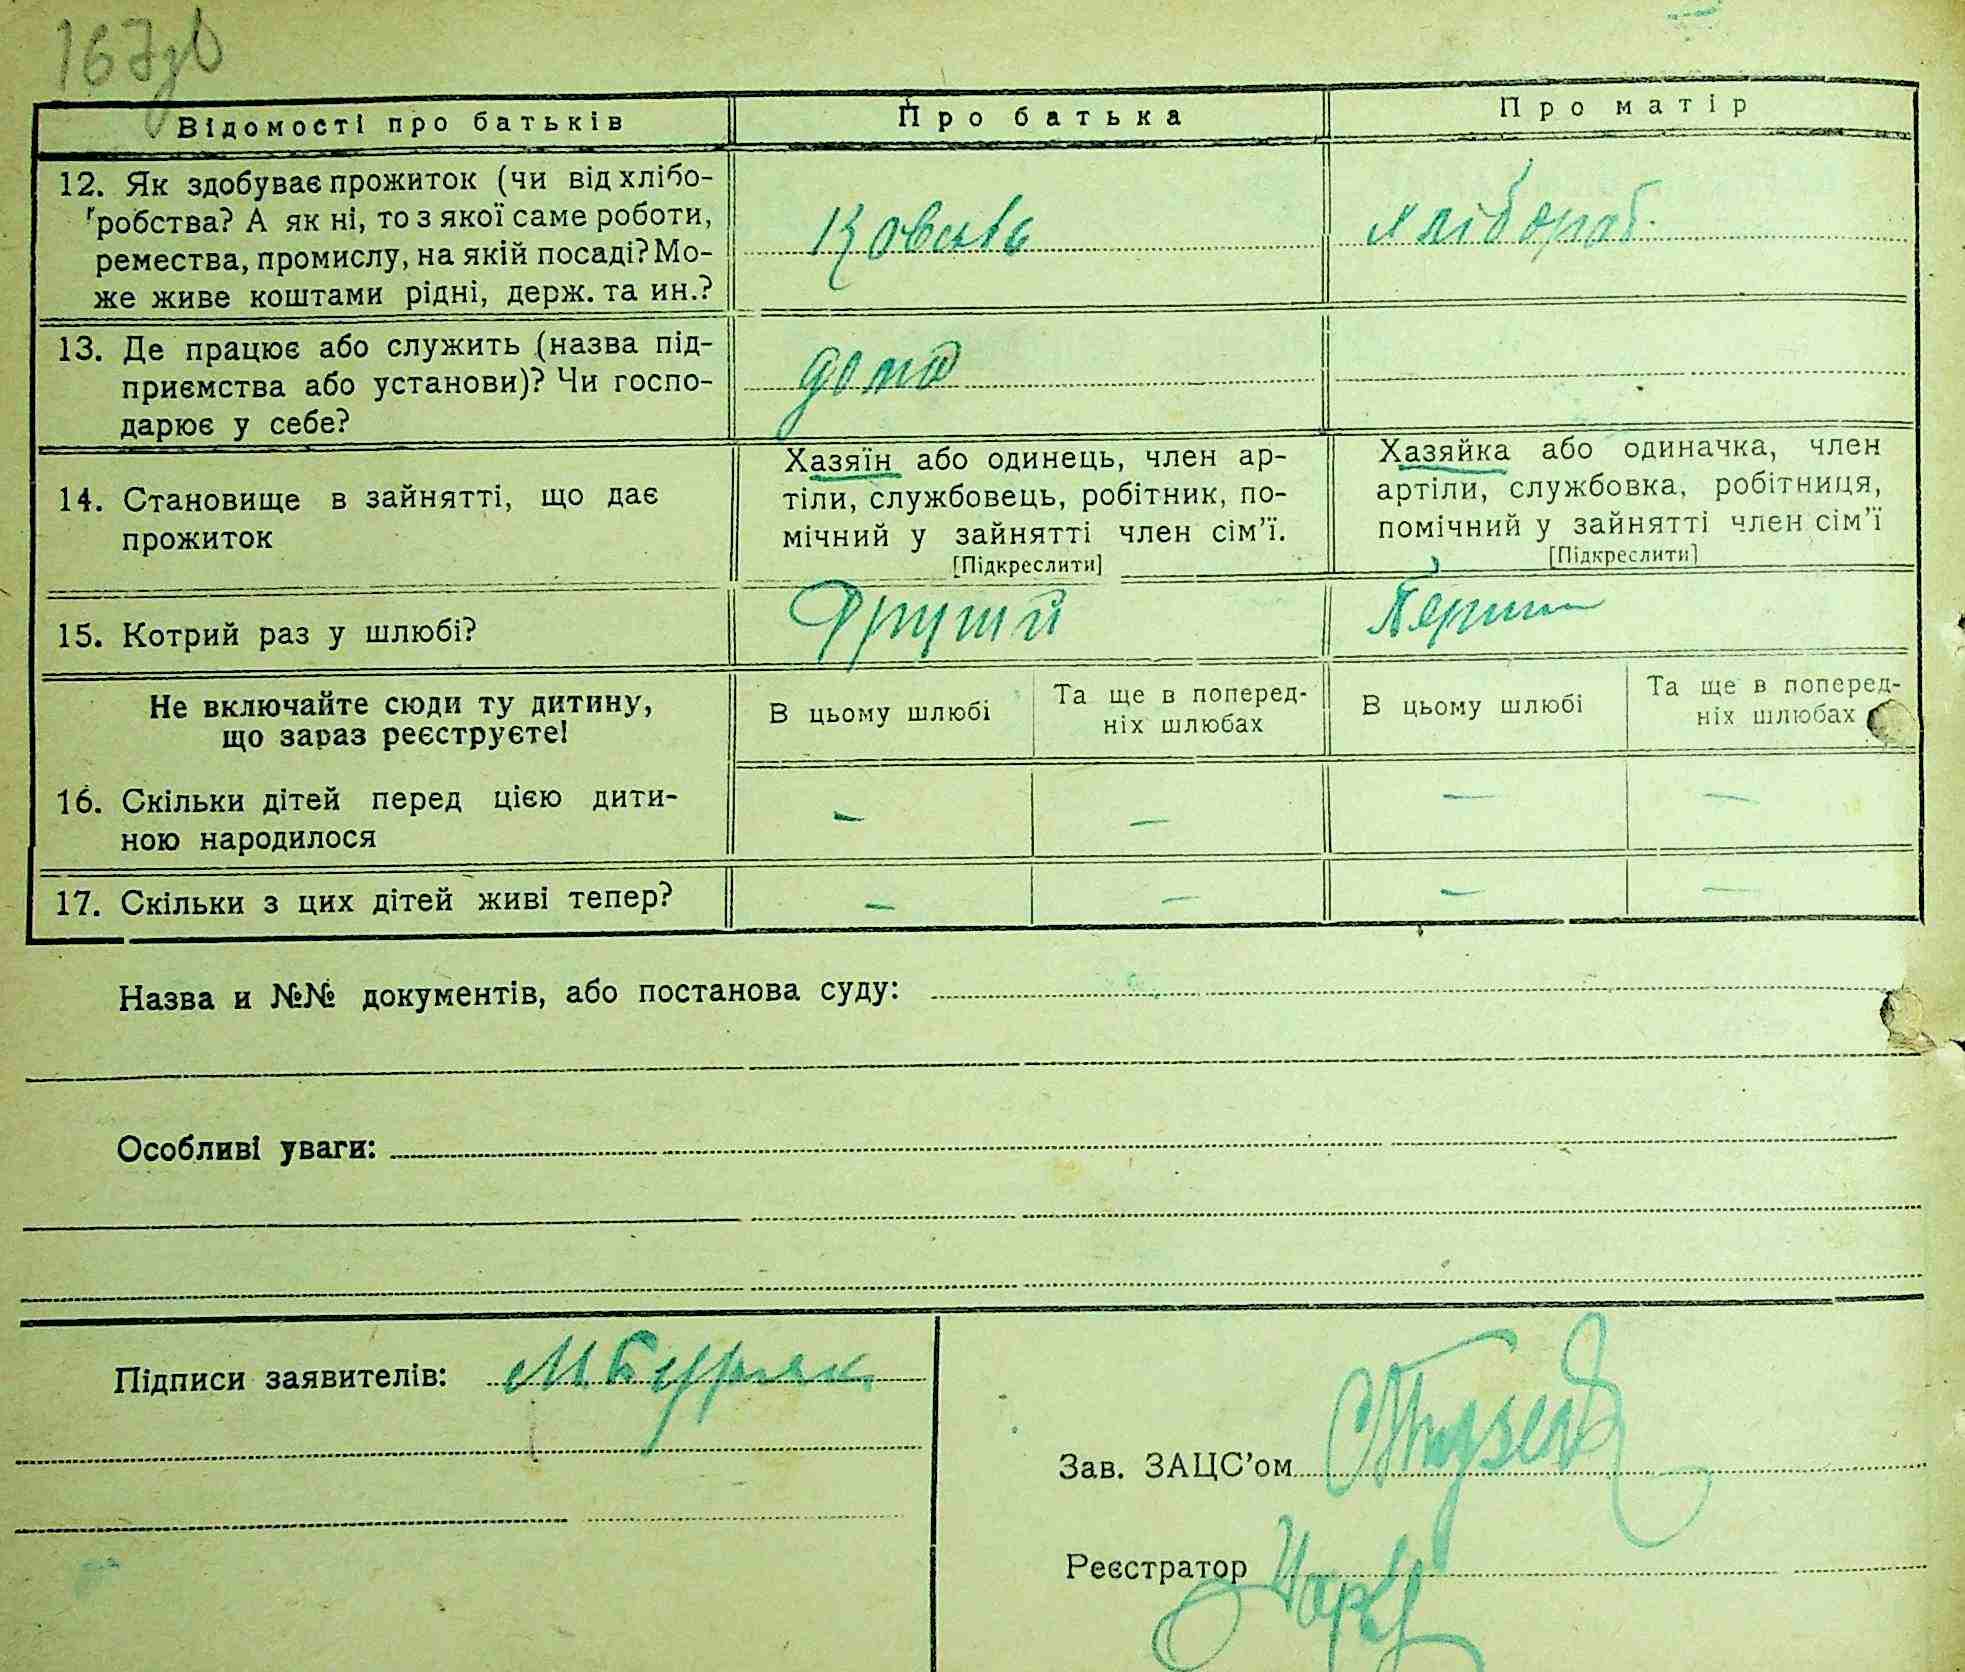 167зв
Відомості про батьків
Про батька
Про матір
12. Як здобуває прожиток (чи від хлібо-
робства? А як ні, то з якої саме роботи,
ремества, промислу, на якій посаді? Мо-
же живе коштами рідні, держ. та ин.?
Коваль
хлібороб.
13. Де працює або служить (назва під-
приємства або установи)? Чи госпо-
дарює у себе?
дома
14. Становище в зайнятті, що дає
прожиток
Хазяїн або одинець, член ар-
тіли, службовець, робітник, по-
мічний у зайнятті член сім’ї.
[Підкреслити]
Хазяйка або одиначка, член
артіли, службовка, робітниця,
помічний у зайнятті член сім’ї
[Підкреслити]
15. Котрий раз у шлюбі?
Другий
Перший
Не включайте сюди ту дитину,
що зараз реєструєте!
В цьому шлюбі
Та ще в поперед-
ніх шлюбах
В цьому шлюбі
Та ще в поперед-
ніх шлюбах
16. Скільки дітей перед цією дити-
ною народилося
– – – –
17. Скільки з цих дітей живі тепер?
– – – –
Назва и №№ документів, або постанова суду:
Особливі уваги:
Підписи заявителів: М Буряк
Зав. ЗАЦС’ом
Реєстратор